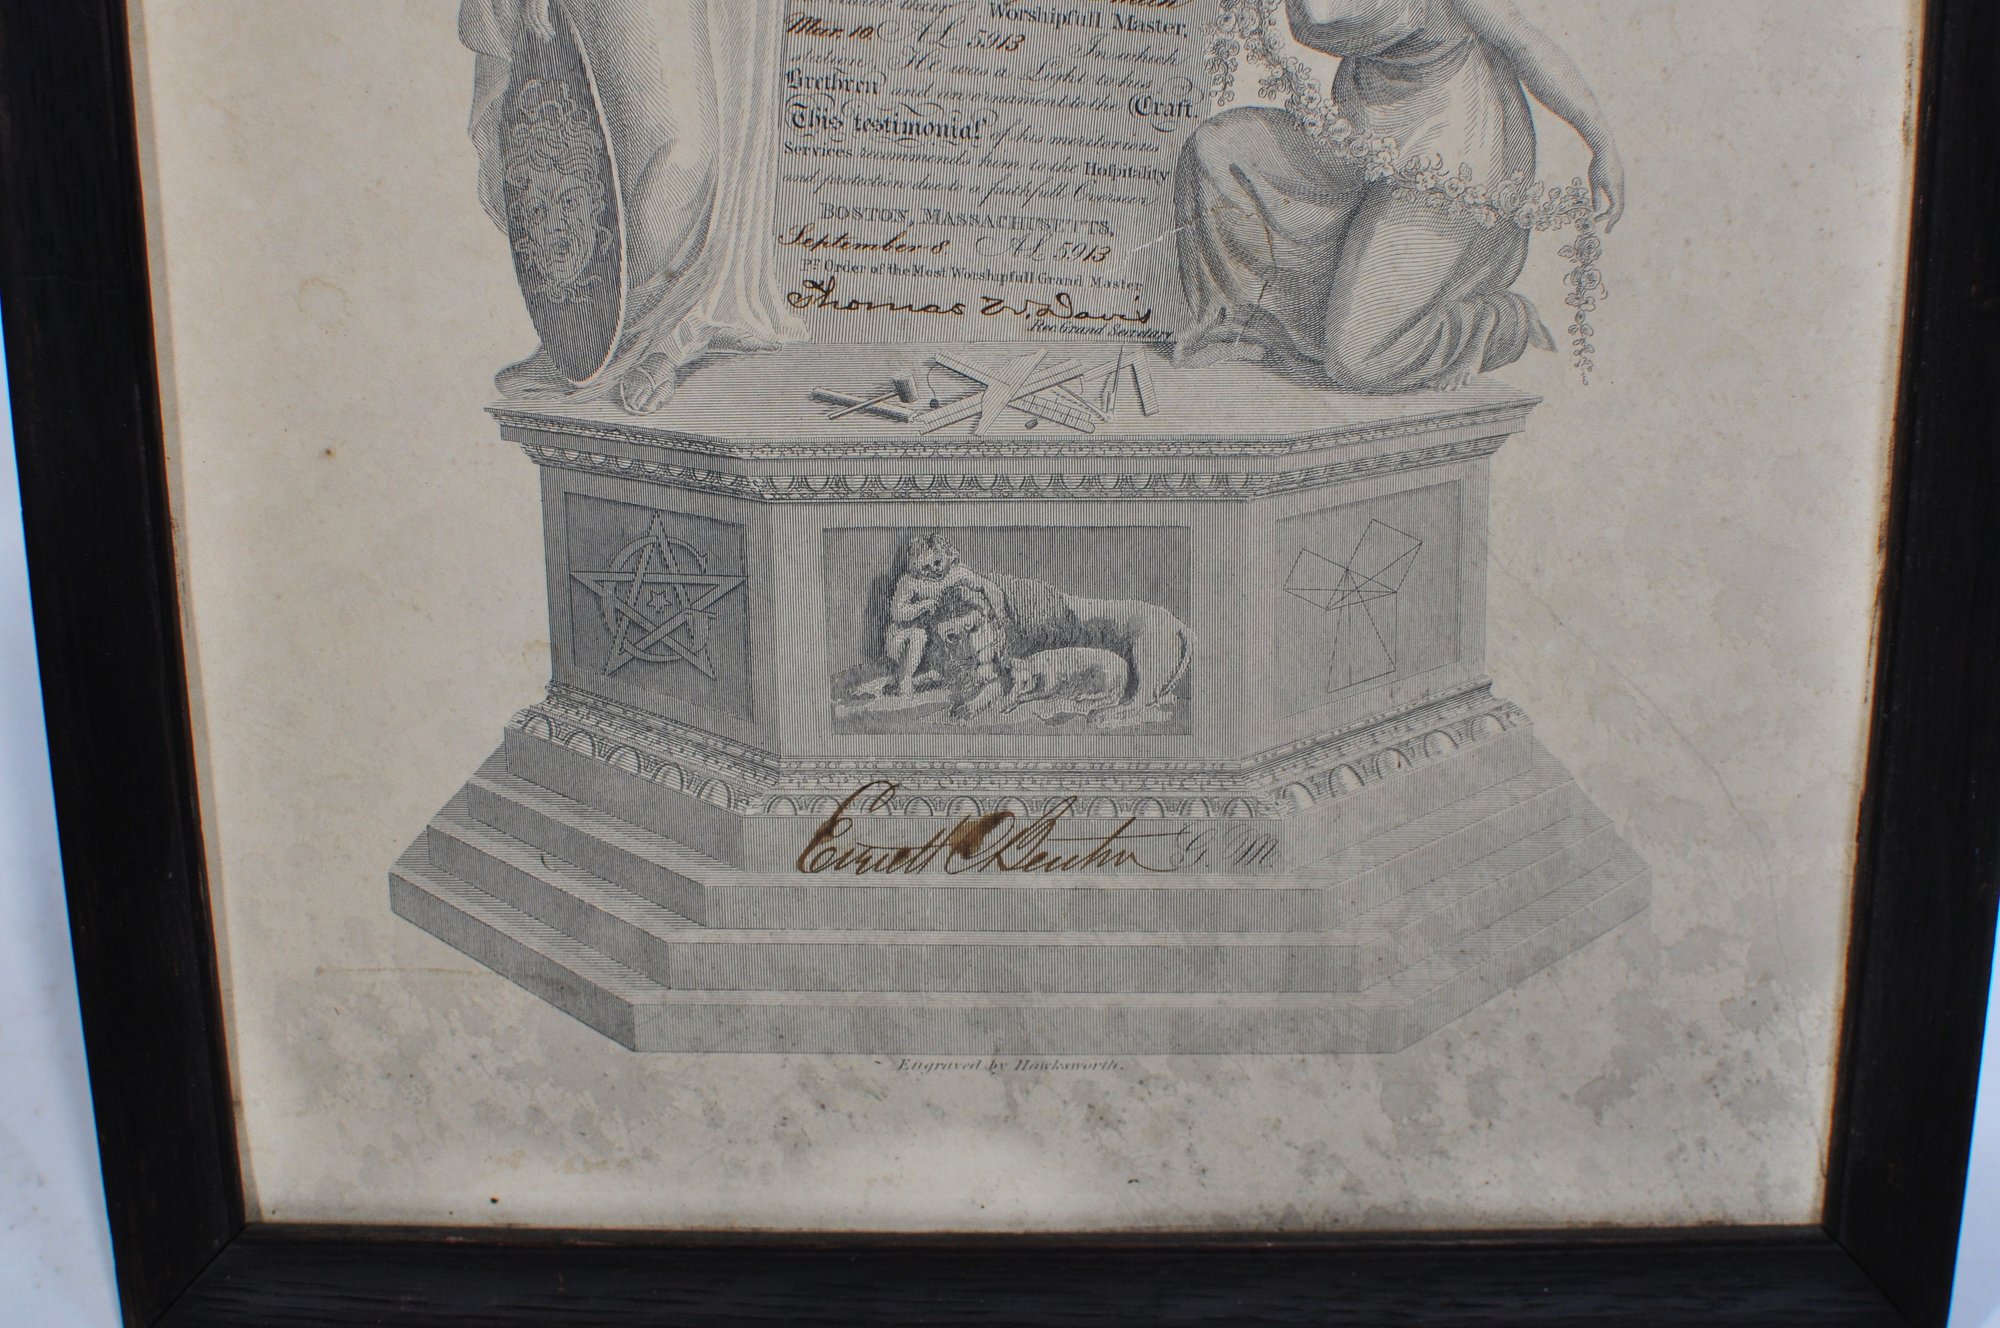 their Worshipfull Master,
Mar. 10. AL 5913 In which
station, He was a Light to his
Brethren and an ornament to the Craft.
This testimonial of his meritorious
Services recommends him to the Hospitality
and protection due to a faithfull Overseer
BOSTON, MASSACHUSETTS,
September 8. AL 5913
Pr Order of the Most Worshipfull Grand Master
Thomas W. Davis
Rec. Grand Secretary
G
Everett C Benton G. M.
Engraved by Hawksworth.